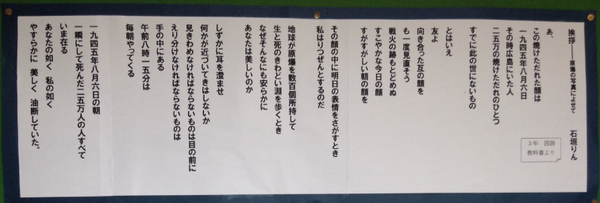 挨拶――原爆の写真によせて
石垣りん
3年 国語
教科書より
あ、
この焼けただれた顔は
一九四五年八月六日
その時広島にいた人
二五万の焼けただれのひとつ
すでに此の世にないもの
とはいえ
友よ
向き合った互の顔を
も一度見直そう
戦火の跡もとどめぬ
すこやかな今日の顔
すがすがしい朝の顔を
その顔の中に明日の表情をさがすとき
私はりつぜんとするのだ
地球が原爆を数百個所持して
生と死のきわどい淵を歩くとき
なぜそんなにも安らかに
あなたは美しいのか
しずかに耳を澄ませ
何かが近づいてきはしないか
見きわめなければならないものは目の前に
えり分けなければならないものは
手の中にある
午前八時一五分は
毎朝やってくる
一九四五年八月六日の朝
一瞬にして死んだ二五万人の人すべて
いま在る
あなたの如く 私の如く
やすらかに 美しく 油断していた。